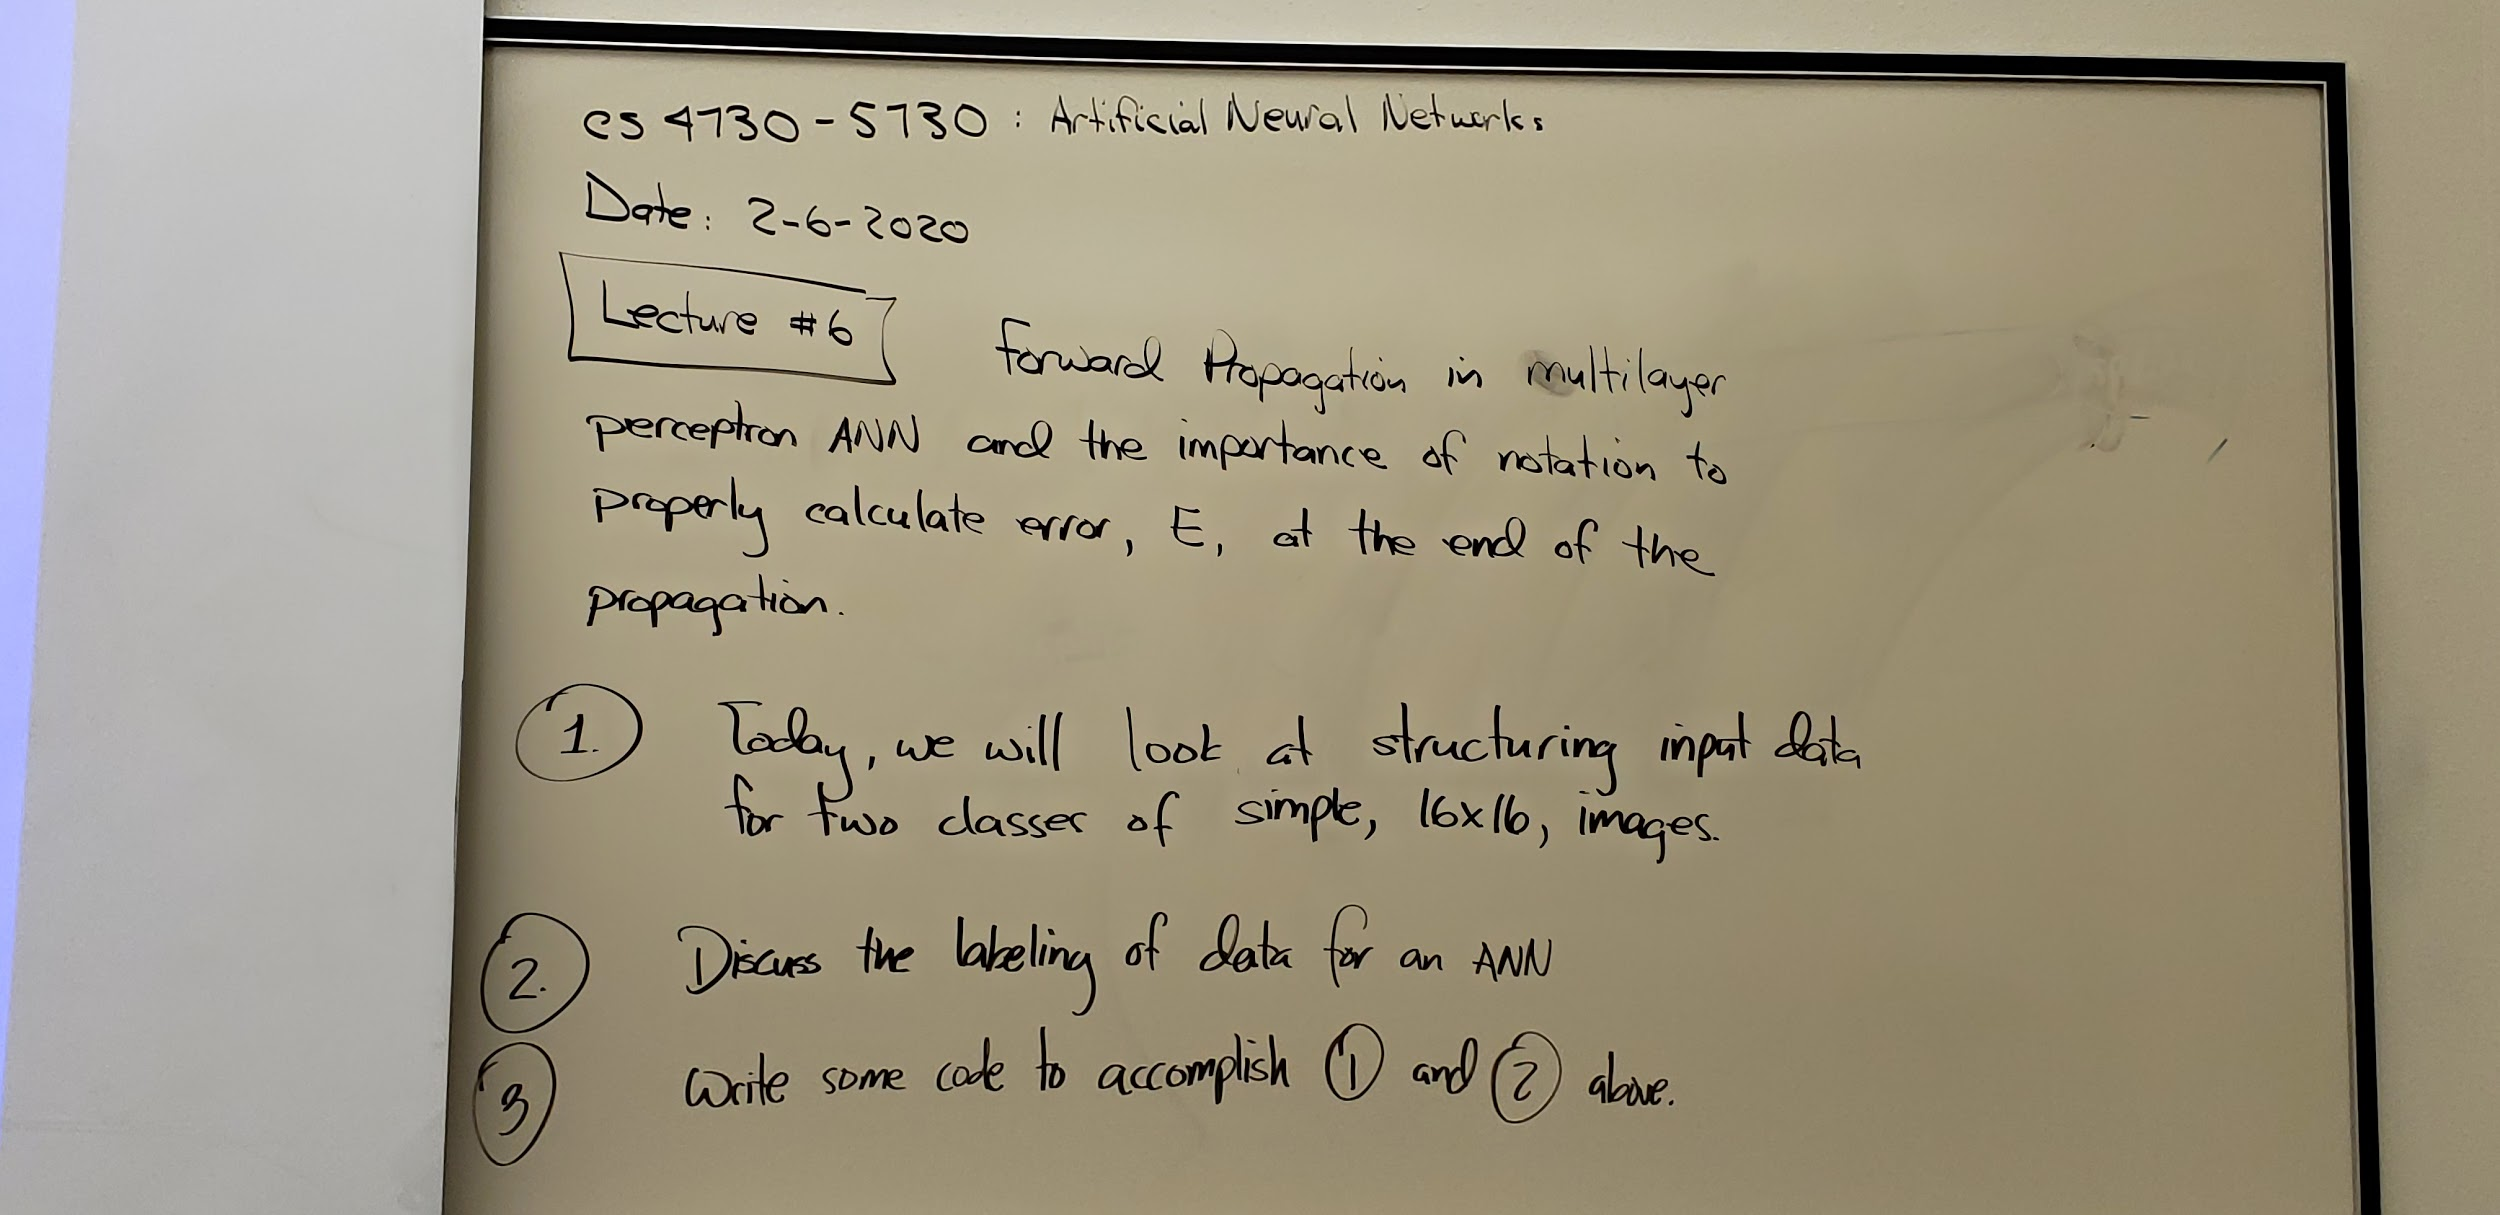 CS 4730-5730 : Artificial Neural Networks
Date: 2-6-2020
Lecture #6
Forward Propagation in multilayer
perceptron ANN and the importance of notation to
properly calculate error, E, at the end of the
propagation.
1. Today, we will look at structuring input data
for two classes of simple, 16x16, images.
2. Discuss the labeling of data for an ANN
3 Write some code to accomplish 1 and 2 above.